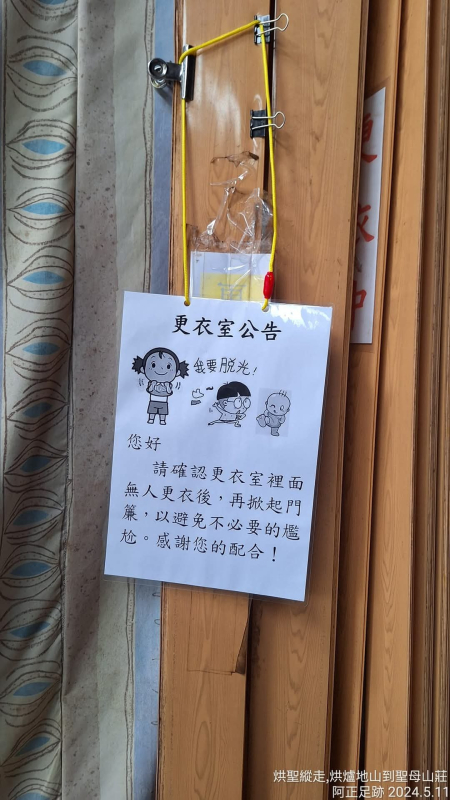 更衣室公告
我要脫光!
您好
請確認更衣室裡面
無人更衣後，再掀起門
簾，以避免不必要的尷
尬。感謝您的配合！
更
衣
中
烘聖縱走,烘爐地山到聖母山莊
阿正足跡 2024.5.11